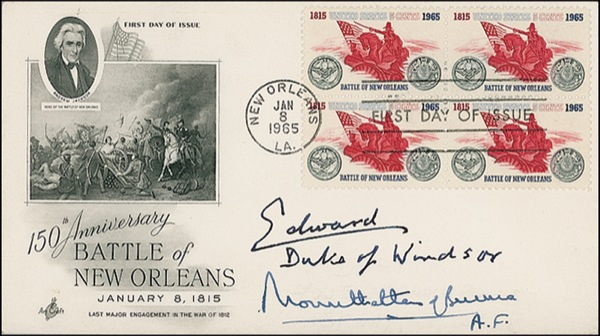 FIRST DAY OF ISSUE
HERO OF THE BATTLE OF NEW ORLEANS
150th Anniversary
BATTLE of
NEW ORLEANS
JANUARY 8, 1815
LAST MAJOR ENGAGEMENT IN THE WAR OF 1812
ArtCraft
NEW ORLEANS
JAN
8
1965
LA.
FIRST DAY OF ISSUE
1815 UNITED STATES 5 CENTS 1965
BATTLE OF NEW ORLEANS
1815 UNITED STATES 5 CENTS 1965
BATTLE OF NEW ORLEANS
1815 UNITED STATES 5 CENTS 1965
BATTLE OF NEW ORLEANS
1815 UNITED STATES 5 CENTS 1965
BATTLE OF NEW ORLEANS
Edward
Duke of Windsor
Mountbatten of Burma
A.F.